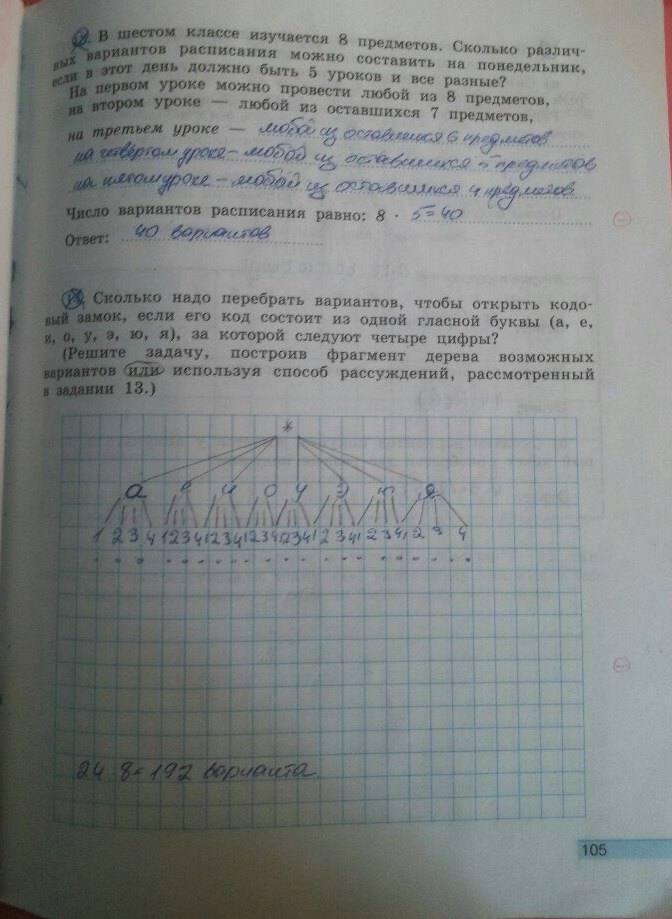 В шестом классе изучается 8 предметов. Сколько различ-
ных вариантов расписания можно составить на понедельник,
если в этот день должно быть 5 уроков и все разные?
На первом уроке можно провести любой из 8 предметов,
на втором уроке — любой из оставшихся 7 предметов,
на третьем уроке — любой из оставшихся 6 предметов
на четвёртом уроке – любой из оставшихся 5 предметов
на пятом уроке – любой из оставшихся 4 предметов
Число вариантов расписания равно: 8 · 5=40
Ответ: 40 вариантов
Сколько надо перебрать вариантов, чтобы открыть кодо-
вый замок, если его код состоит из одной гласной буквы (а, е,
и, о, у, э, ю, я), за которой следуют четыре цифры?
(Решите задачу, построив фрагмент дерева возможных
вариантов или используя способ рассуждений, рассмотренный
в задании 13.)
*
а е и о у э ю я
1 2 3 4 1 2 3 4 1 2 3 4 1 2 3 4 1 2 3 4 1 2 3 4 1 2 3 4 1 2 3 4
24 8=192 варианта
105